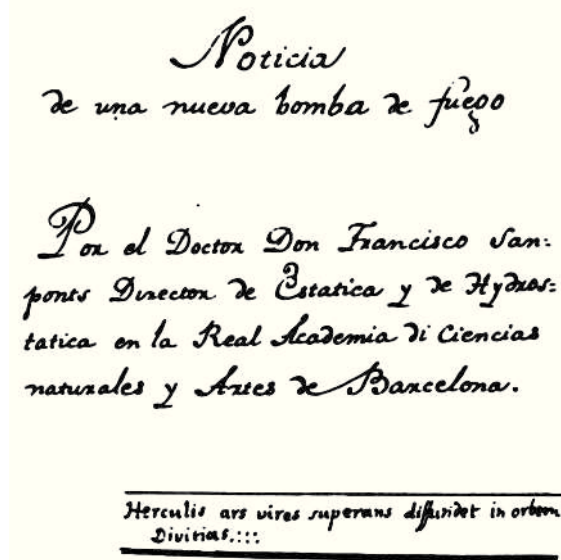 Noticia
de una nueva bomba de fuego
Por el Doctor Don Francisco San=
ponts Director de Estatica y de Hydros=
tatica en la Real Academia di Ciencias
naturales y Artes de Barcelona.
Herculis ars vires superans diffundet in orbem
Divitias.:::